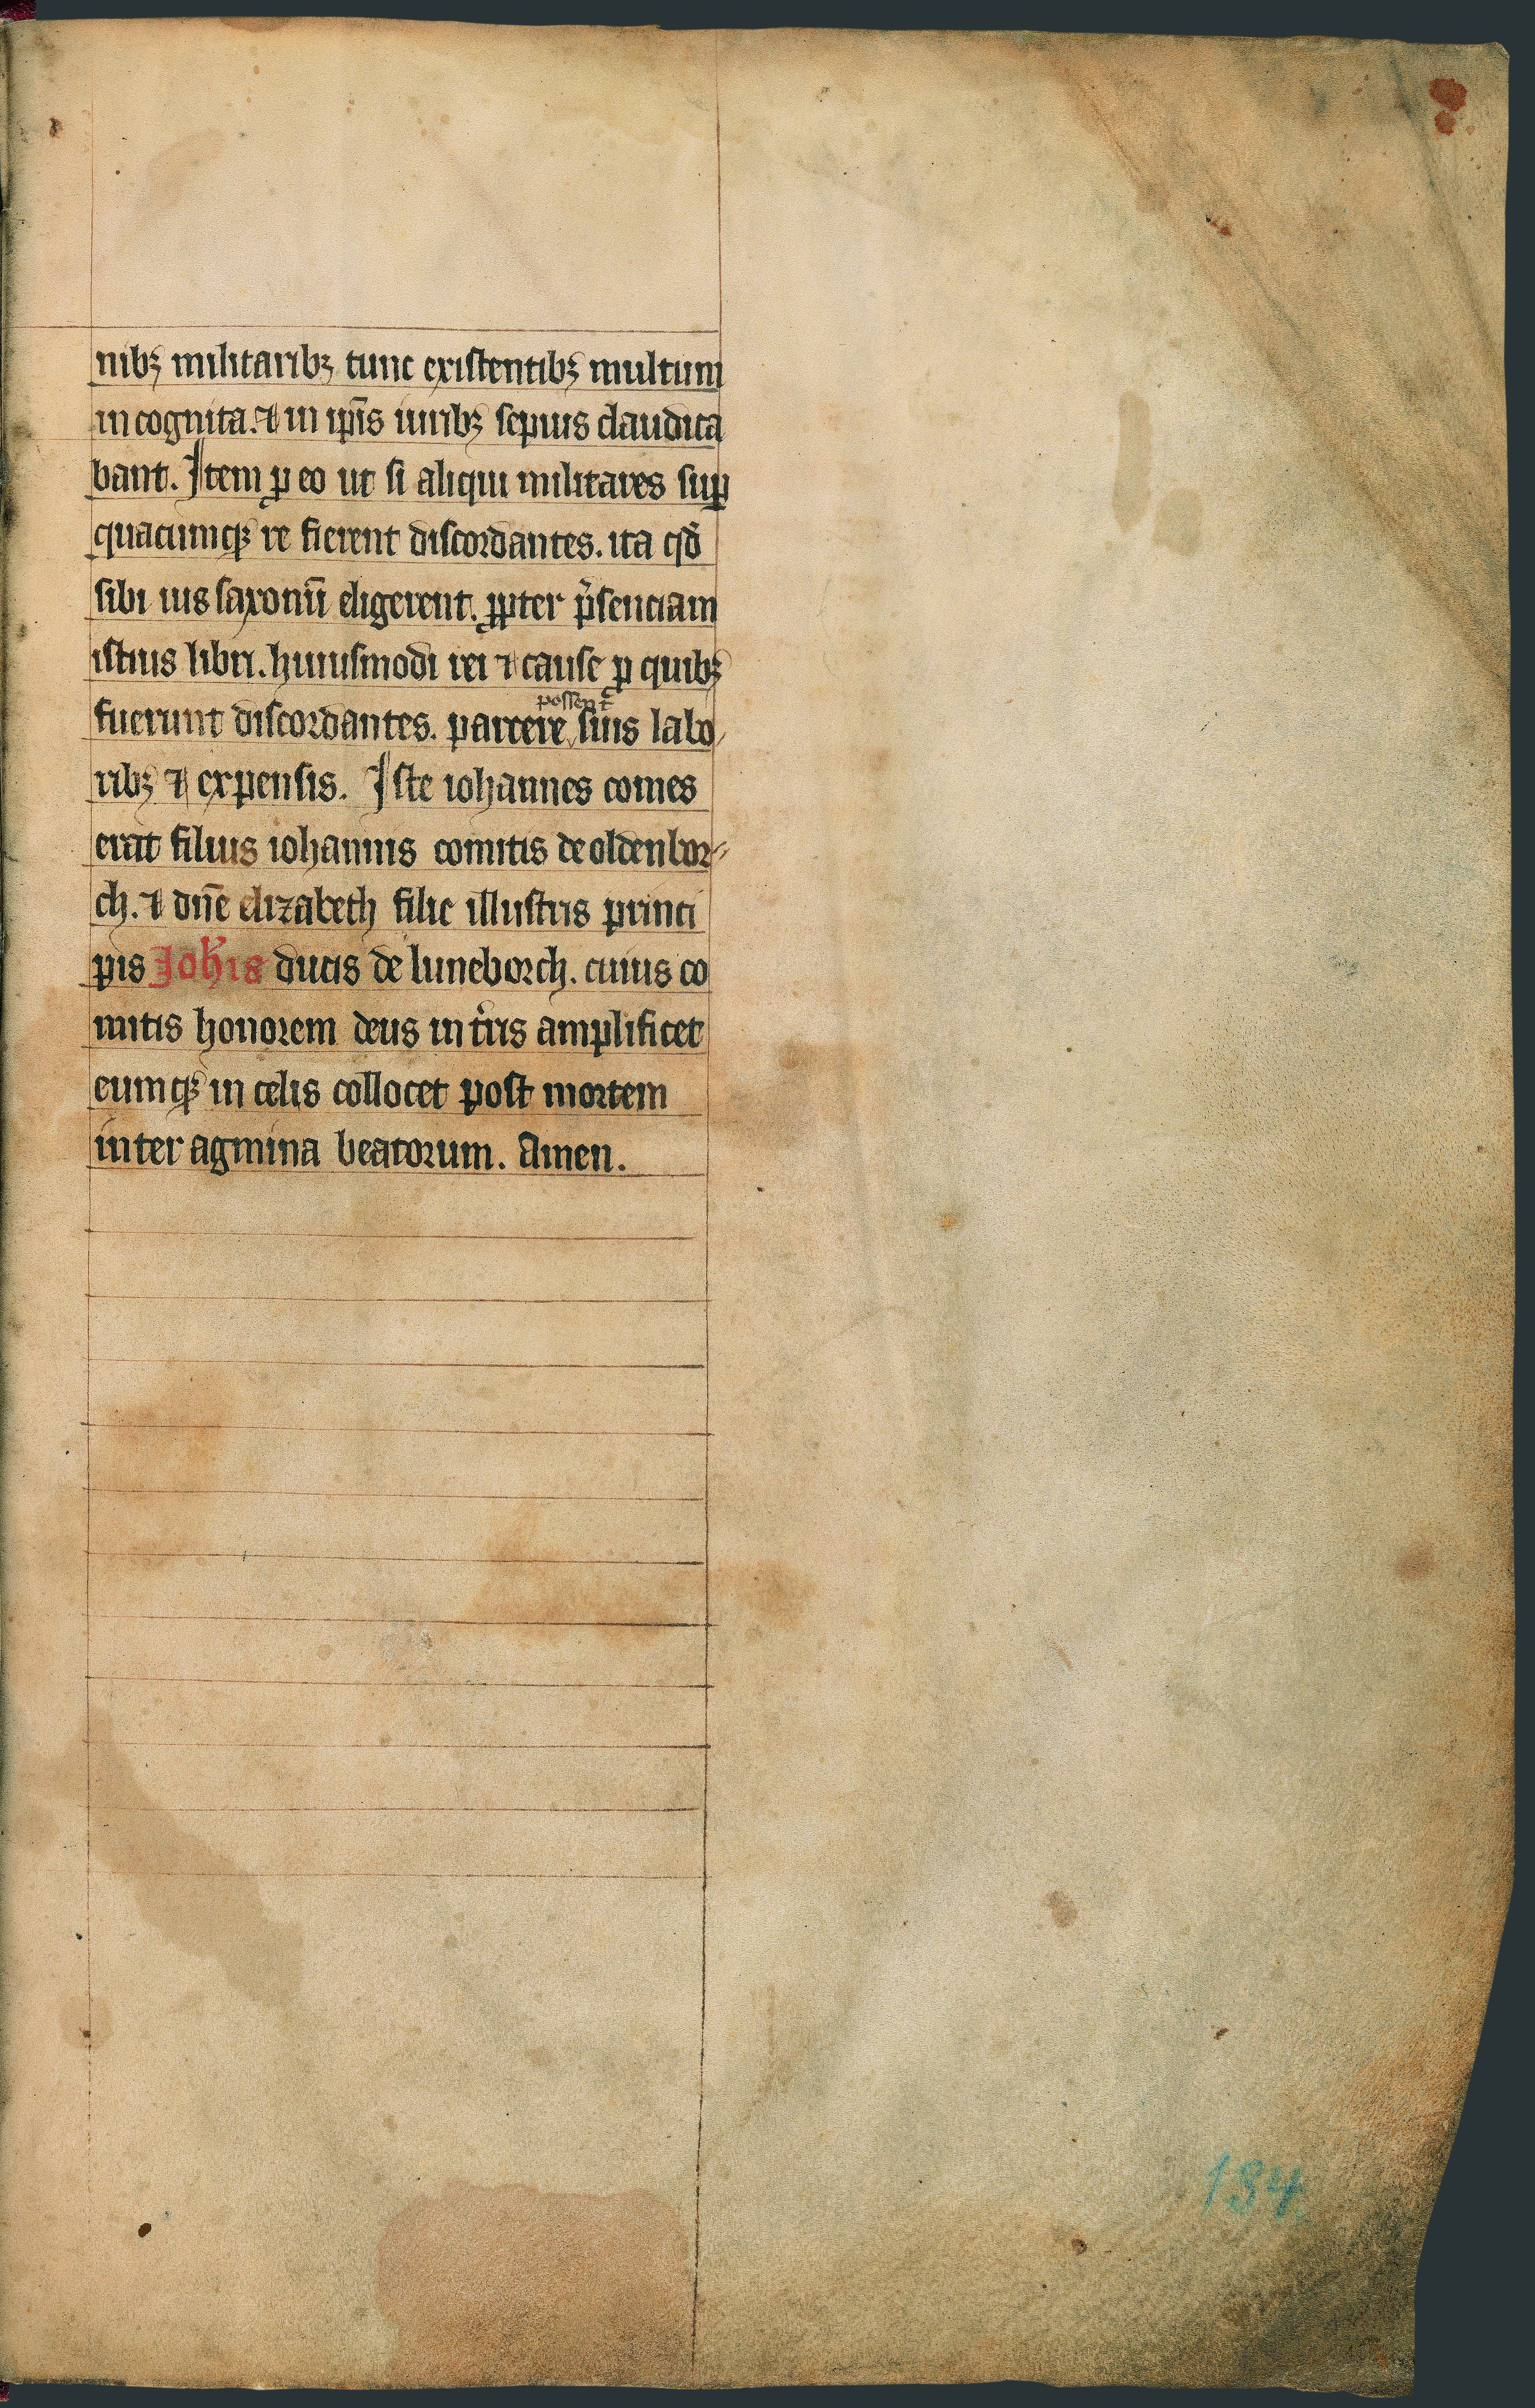 nibꝫ militaribꝫ tunc existentibꝫ multum
in cognita. ⁊ in ip̄is iuribꝫ sepius claudica
bant. Item ꝑ eo ut si aliqui militares suꝑ
quacumqꝫ re fierent discordantes. ita qd̄
sibi ius saxonū eligerent. ꝓpter p̄senciam
istius libri. huiusmodi rei ⁊ cause ꝓ quibꝫ
possent
fuerunt discordantes. parcere suis labo
ribꝫ ⁊ expensis. Iste iohannes comes
erat filius iohannis comitis de oldenbor⸗
ch. ⁊ dn̄e elizabeth filie illustris princi
pis Joh̄is ducis de luneborch. cuius co
mitis honorem deus in t̄ris amplificet
eumqꝫ in celis collocet post mortem
inter agmina beatorum. Amen.
134